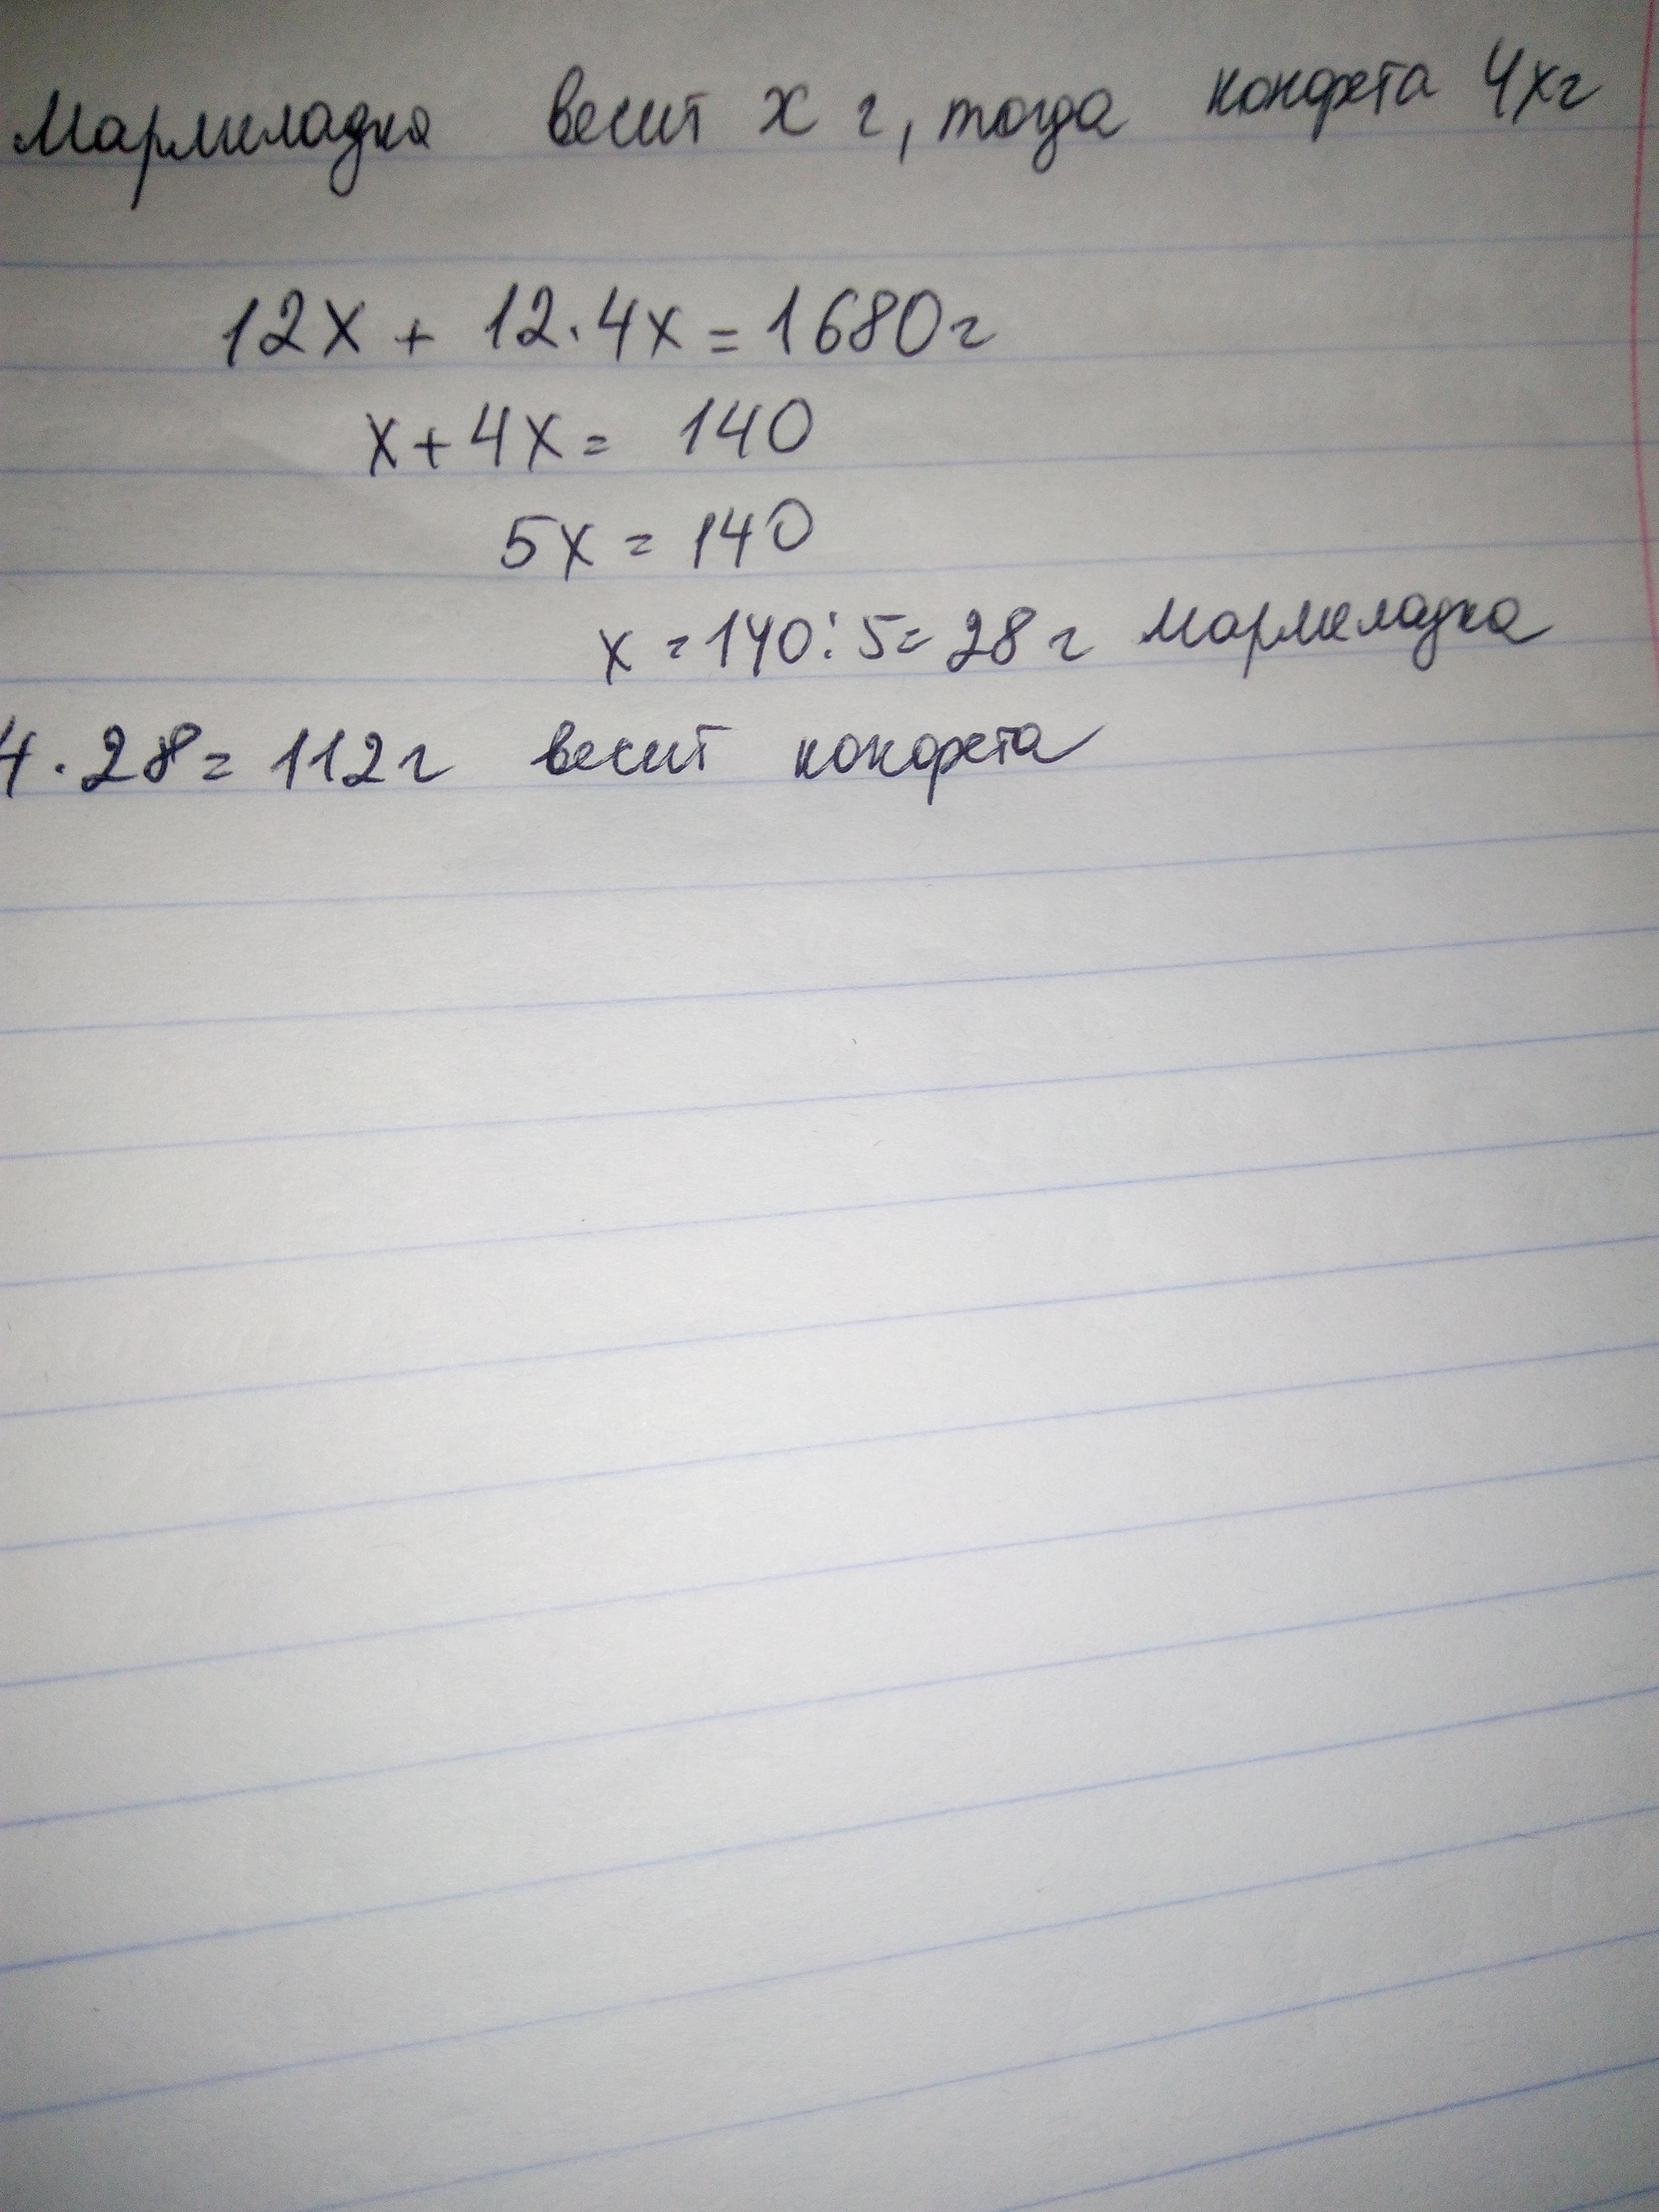 Мармеладка весит x г, тогда конфета 4xг
12x + 12·4x = 1680г
x + 4x = 140
5x = 140
x = 140:5 = 28 г мармеладка
4 · 28 = 112г весит конфета